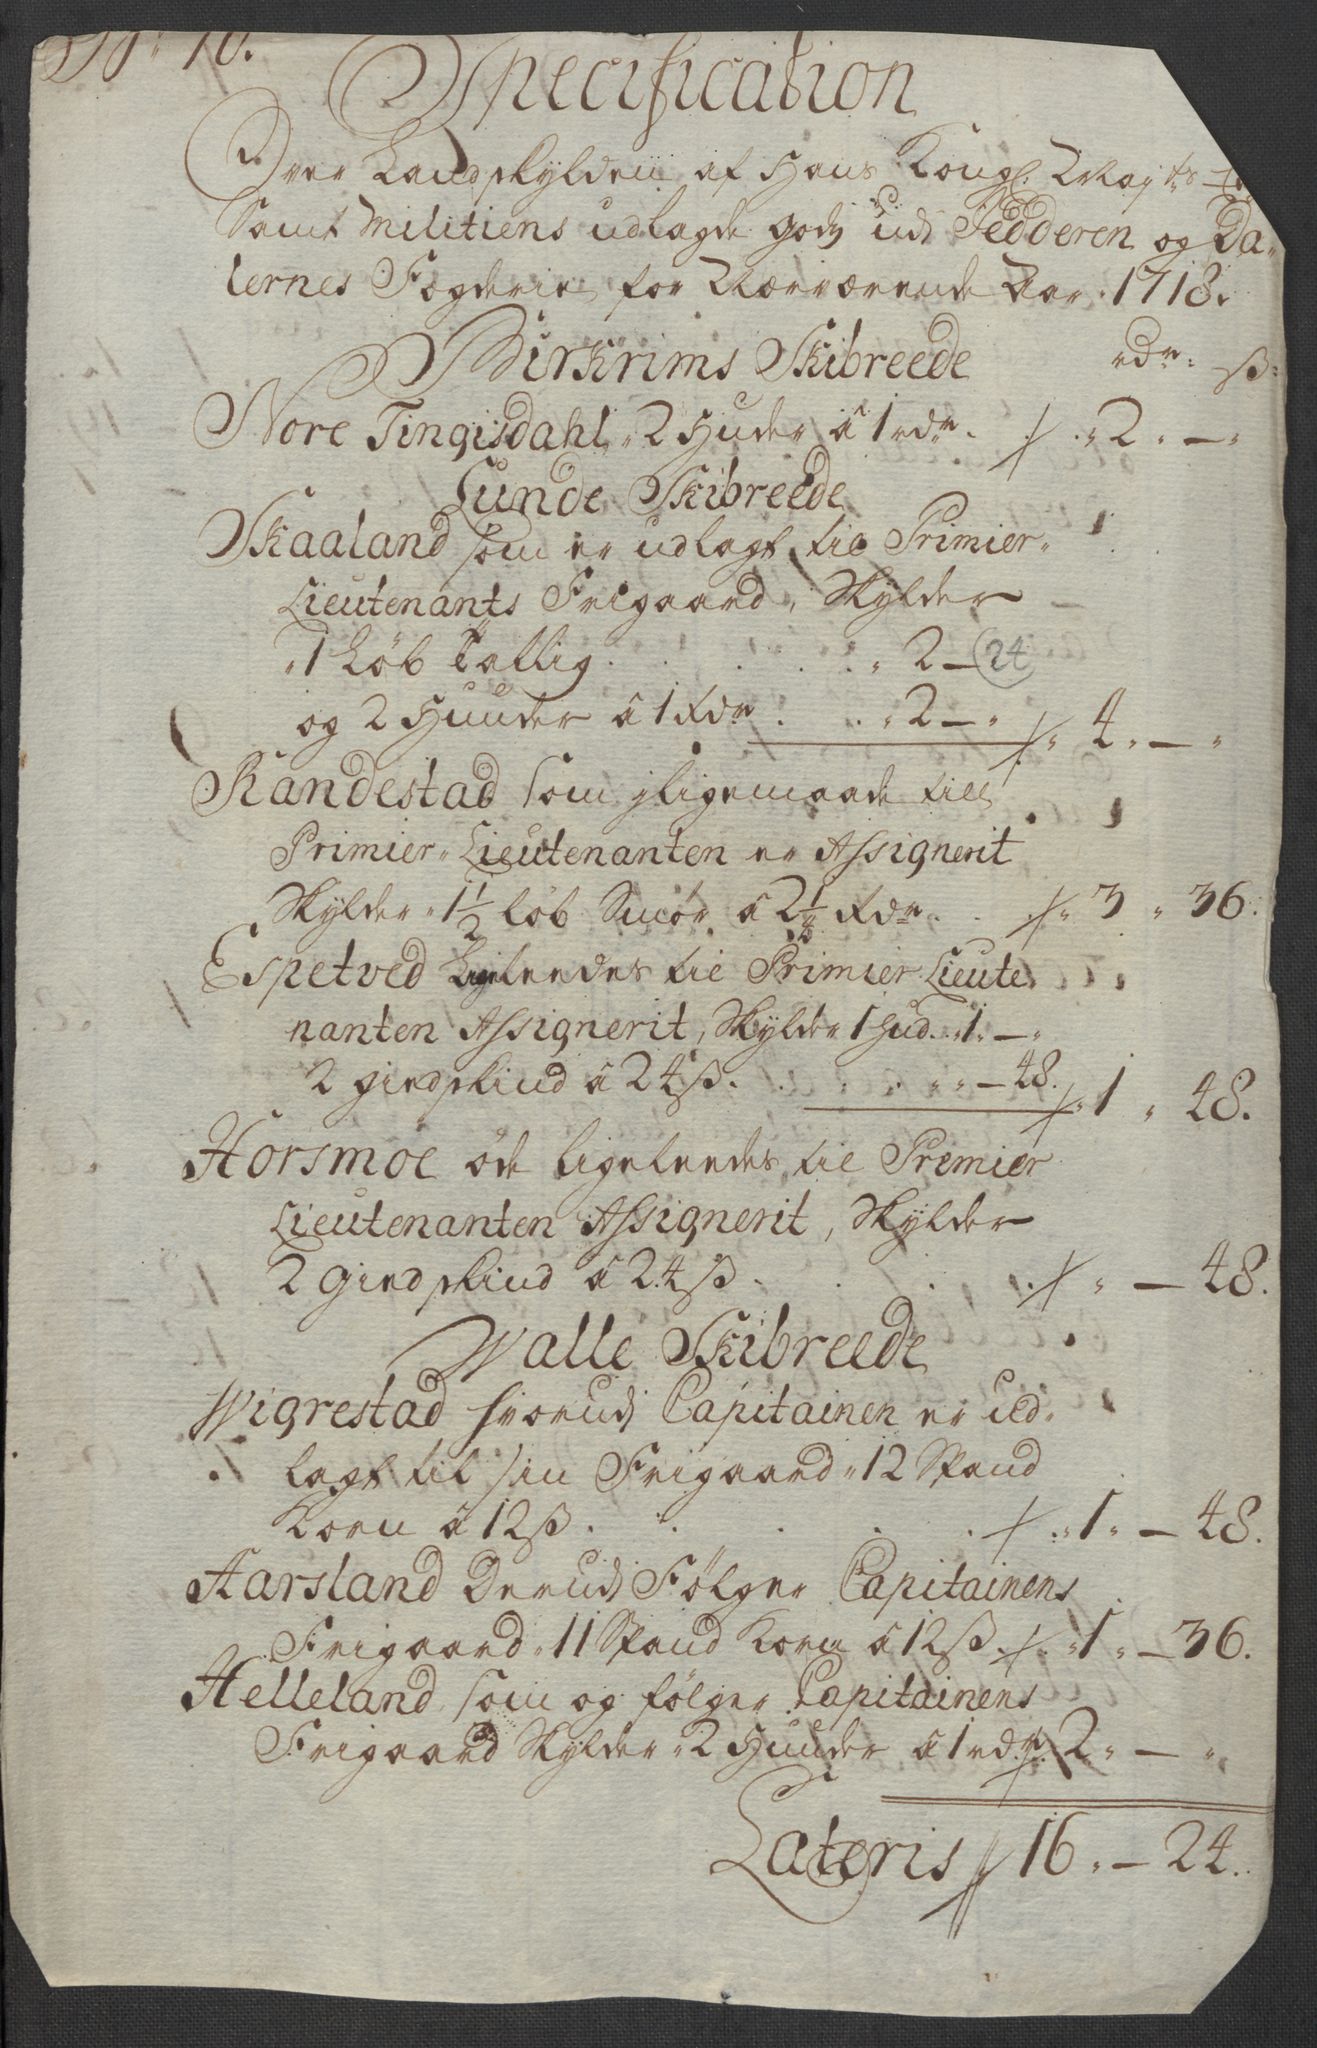 No: 10.
Specification
Over Landskylden af Hans Kongl: Mayts
Samt Militiens udlagde godz udi Jedderen og Da-
lernes Fogderie for Nærværende Aar 1718.
Birkrims Skibreede rdr: ß:
Nore Tingisdahl 2 Huder â 1 rdr. 2 " — "
Lunde Skibreede
Skaaland som er udlagt til Primier-
Lieutenants Frigaard, Skylder
1 Løb Tallig . . . 2 — (24
og 2 Huuder â 1 Rdr . . 2 — " 4 " — "
Randestad som jligemaade till
Primier-Lieutenanten er Assignerit
Skylder 1½ løb Smør â 2¼ Rdr . . 3 " 36.
Espetved ligeleedes til Primier Lieute
nanten Assignerit, Skylder 1 Hud . 1 — "
2 giedskind â 24 ß . . . " — 48. 1 " 48.
Horsmoe øde ligeleedes til Premier
Lieutenanten Assignerit, Skylder
2 Giedskind â 24 ß . . . " — 48.
Walle Skibreede
Wigrestad hvorudj Capitainen er ud-
lagt til sin Frigaard 12 Spand
Korn â 12 ß . . . . 1 " — 48.
Aarsland Derudj Følger Capitainens
Frigaard 11 Spand Korn â 12 ß . 1 " — 36.
Helleland som og følger Capitainens
Frigaard Skylder 2 Huuder â 1 rdr. 2 " — "
Lateris 16 " — 24.